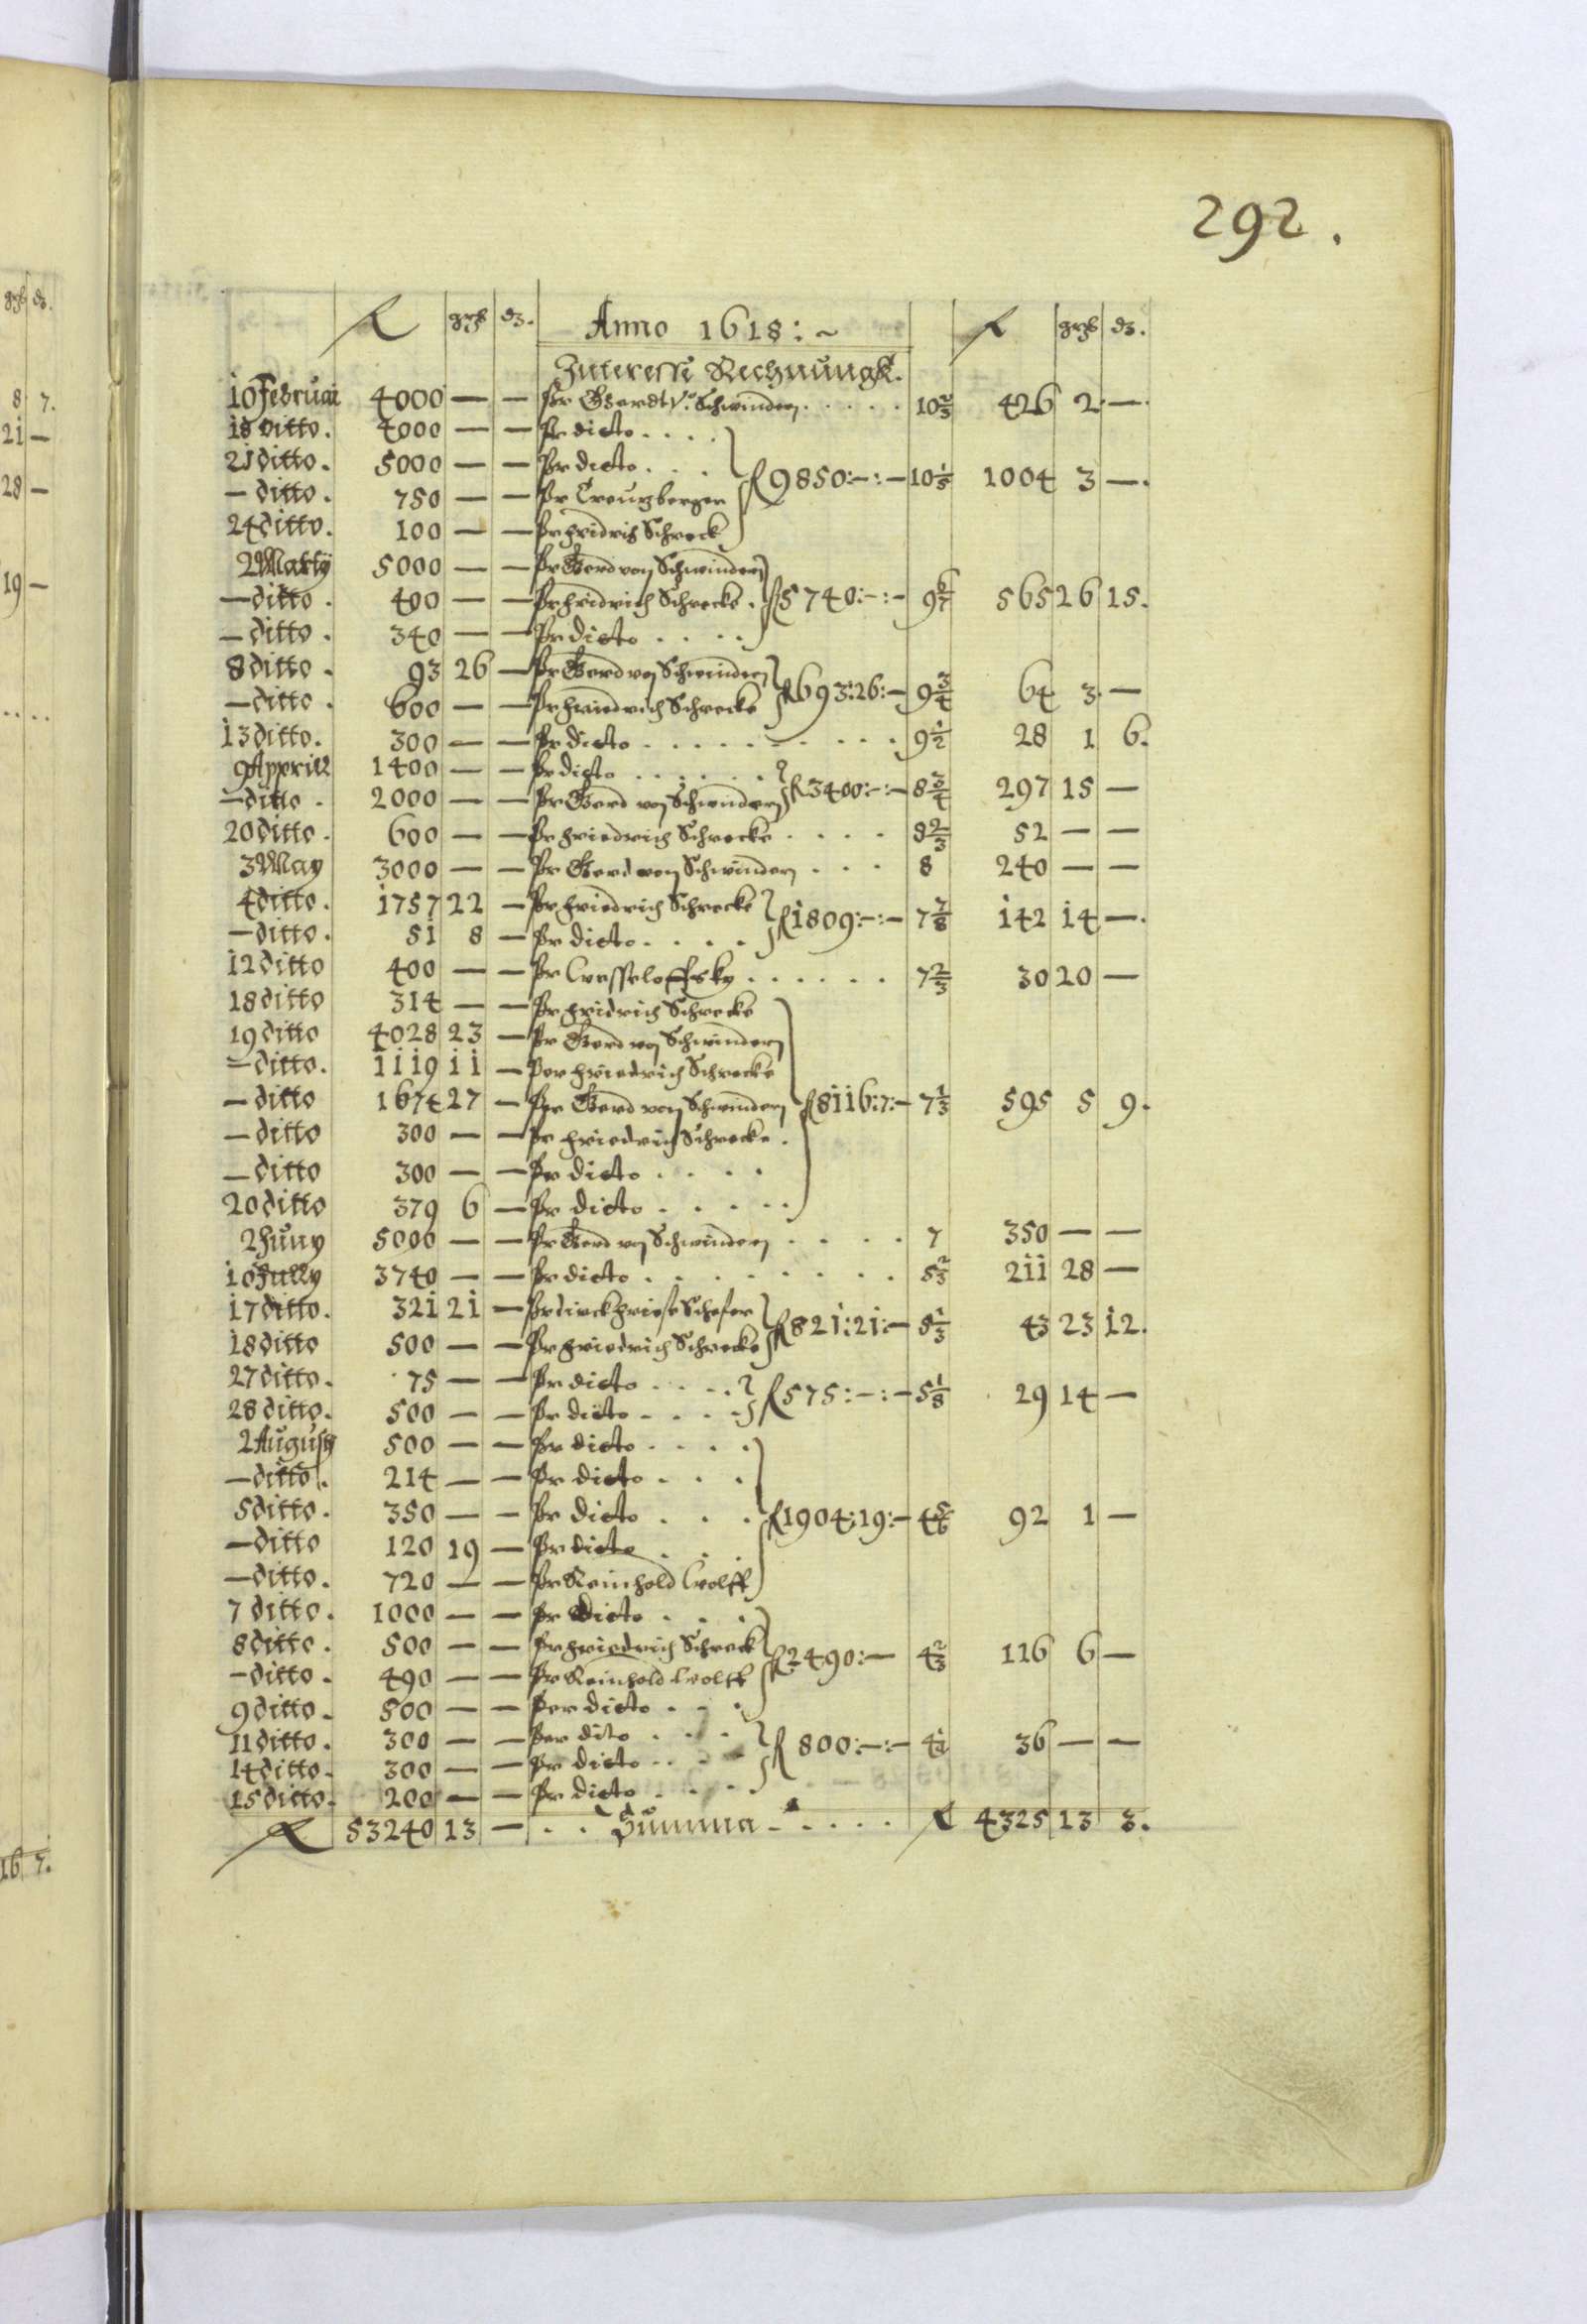 292.
R grß d3. Anno 1618:~ R grß d3.
Interesse Rechnungk.
10 Februai 4000 — — Pr Gerdt V: Schwinden..... 10 2/3 426 2 —.
18 ditto. 4000 — — Pr dicto....
21 ditto. 5000 — — Pr dicto... R 9850:—:— 10 1/5 1004 3 —.
— ditto. 750 — — Pr Creutzberger
24 ditto. 100 — — Pr fridrich Schreck
2 Marty 5000 — — Pr Gerd von Schwinden
— ditto. 400 — — Pr fridrich Schrecke. R 5740:—:— 9 6/7 565 26 15.
— ditto. 340 — — Pr dicto....
8 ditto. 93 26 — Pr Gerd von Schwinden R 693:26:— 9 3/4 64 3 —
— ditto. 600 — — Pr friedrich Schrecke
13 ditto. 300 — — Pr dicto......... 9 1/2 28 1 6.
9 Apprill 1400 — — Pr dicto...... R 3400:—:— 8 3/4 297 15 —
— ditto. 2000 — — Pr Gerd von Schwinden
20 ditto. 600 — — Pr friedrich Schrecke.... 8 2/3 52 — —
3 May 3000 — — Pr Gerd von Schwinden... 8 240 — —
4 ditto. 1757 22 — Pr friedrich Schrecke R 1809:—:— 7 7/8 142 14 —.
— ditto. 51 8 — Pr dicto....
12 ditto 400 — — Pr Wesseloffsky...... 7 2/3 30 20 —
18 ditto 314 — — Pr fridrich Schrecke
19 ditto 4028 23 — Pr Gerd von Schwinden
— ditto. 1119 11 — Per friedrich Schrecke
— ditto 1674 27 — Per Gerd von Schwinden R 8116:7:— 7 1/3 595 5 9.
— ditto 300 — — Pr friedrich Schrecke.
— ditto 300 — — Pr dicto....
20 ditto 379 6 — Pr dicto.....
2 Juny 5000 — — Pr Gerd von Schwinden.... 7 350 — —
10 Jully 3740 — — Pr dicto........ 5 2/3 211 28 —
17 ditto. 321 21 — Pr dirck friese Schefer R 821:21:— 5 1/3 43 23 12.
18 ditto 500 — — Pr friedrich Schrecke
27 ditto. 75 — — Pr dicto.... R 575:—:— 5 1/8 29 14 —
28 ditto. 500 — — Pr dicto....
2 Augusty 500 — — Pr dicto....
— ditto. 214 — — Pr dicto...
5 ditto. 350 — — Pr dicto... R 1904:19:— 4 5/6 92 1 —
— ditto 120 19 — Pr dicto...
— ditto. 720 — — Pr Reinhold Wolff
7 ditto. 1000 — — Pr dicto...
8 ditto. 500 — — Pr friedrich Schreck R 2490:— 4 2/3 116 6 —
— ditto. 490 — — Pr Reinhold Wolff
9 ditto. 500 — — Per dicto...
11 ditto. 300 — — Per dito.... R 800:—:— 4 1/2 36 — —
14 ditto. 300 — — Pr dicto....
15 ditto. 200 — — Pr dicto....
R 53240 13 — .. Summa..... R 4325 13 3.